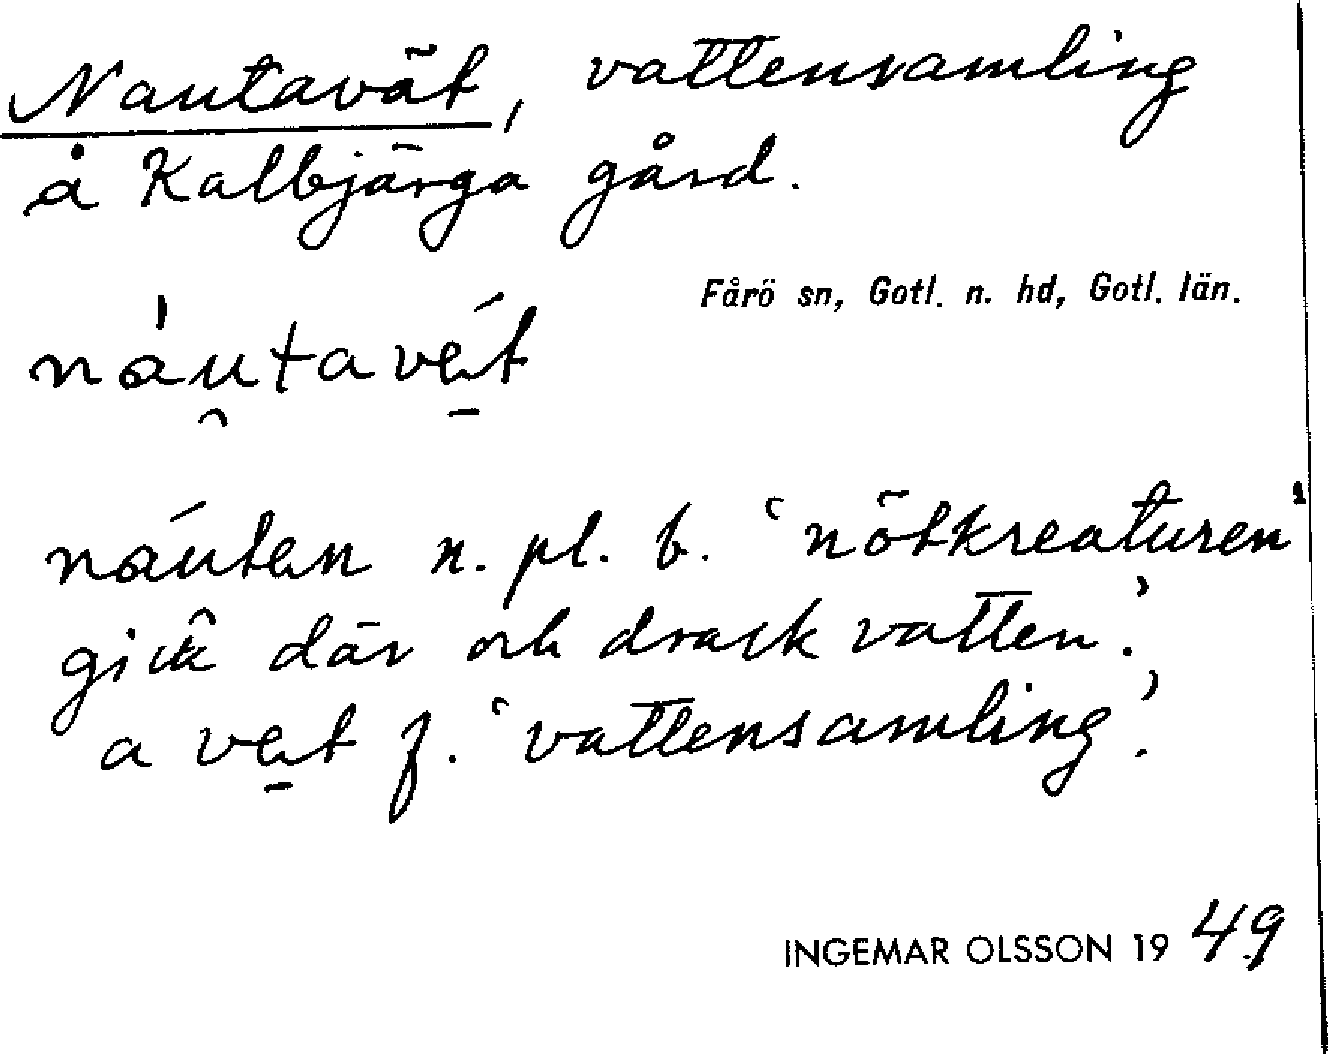 Nautavät, vattensamling
å Kalbjärga gård.
Fårö sn, Gotl. n. hd, Gotl. län.
náu̯tavé̱t
náuten n. pl. b. ‘nötkreaturen’
gick där och drack vatten.’
a ve̱t f. ‘vattensamling’.
INGEMAR OLSSON 19 49